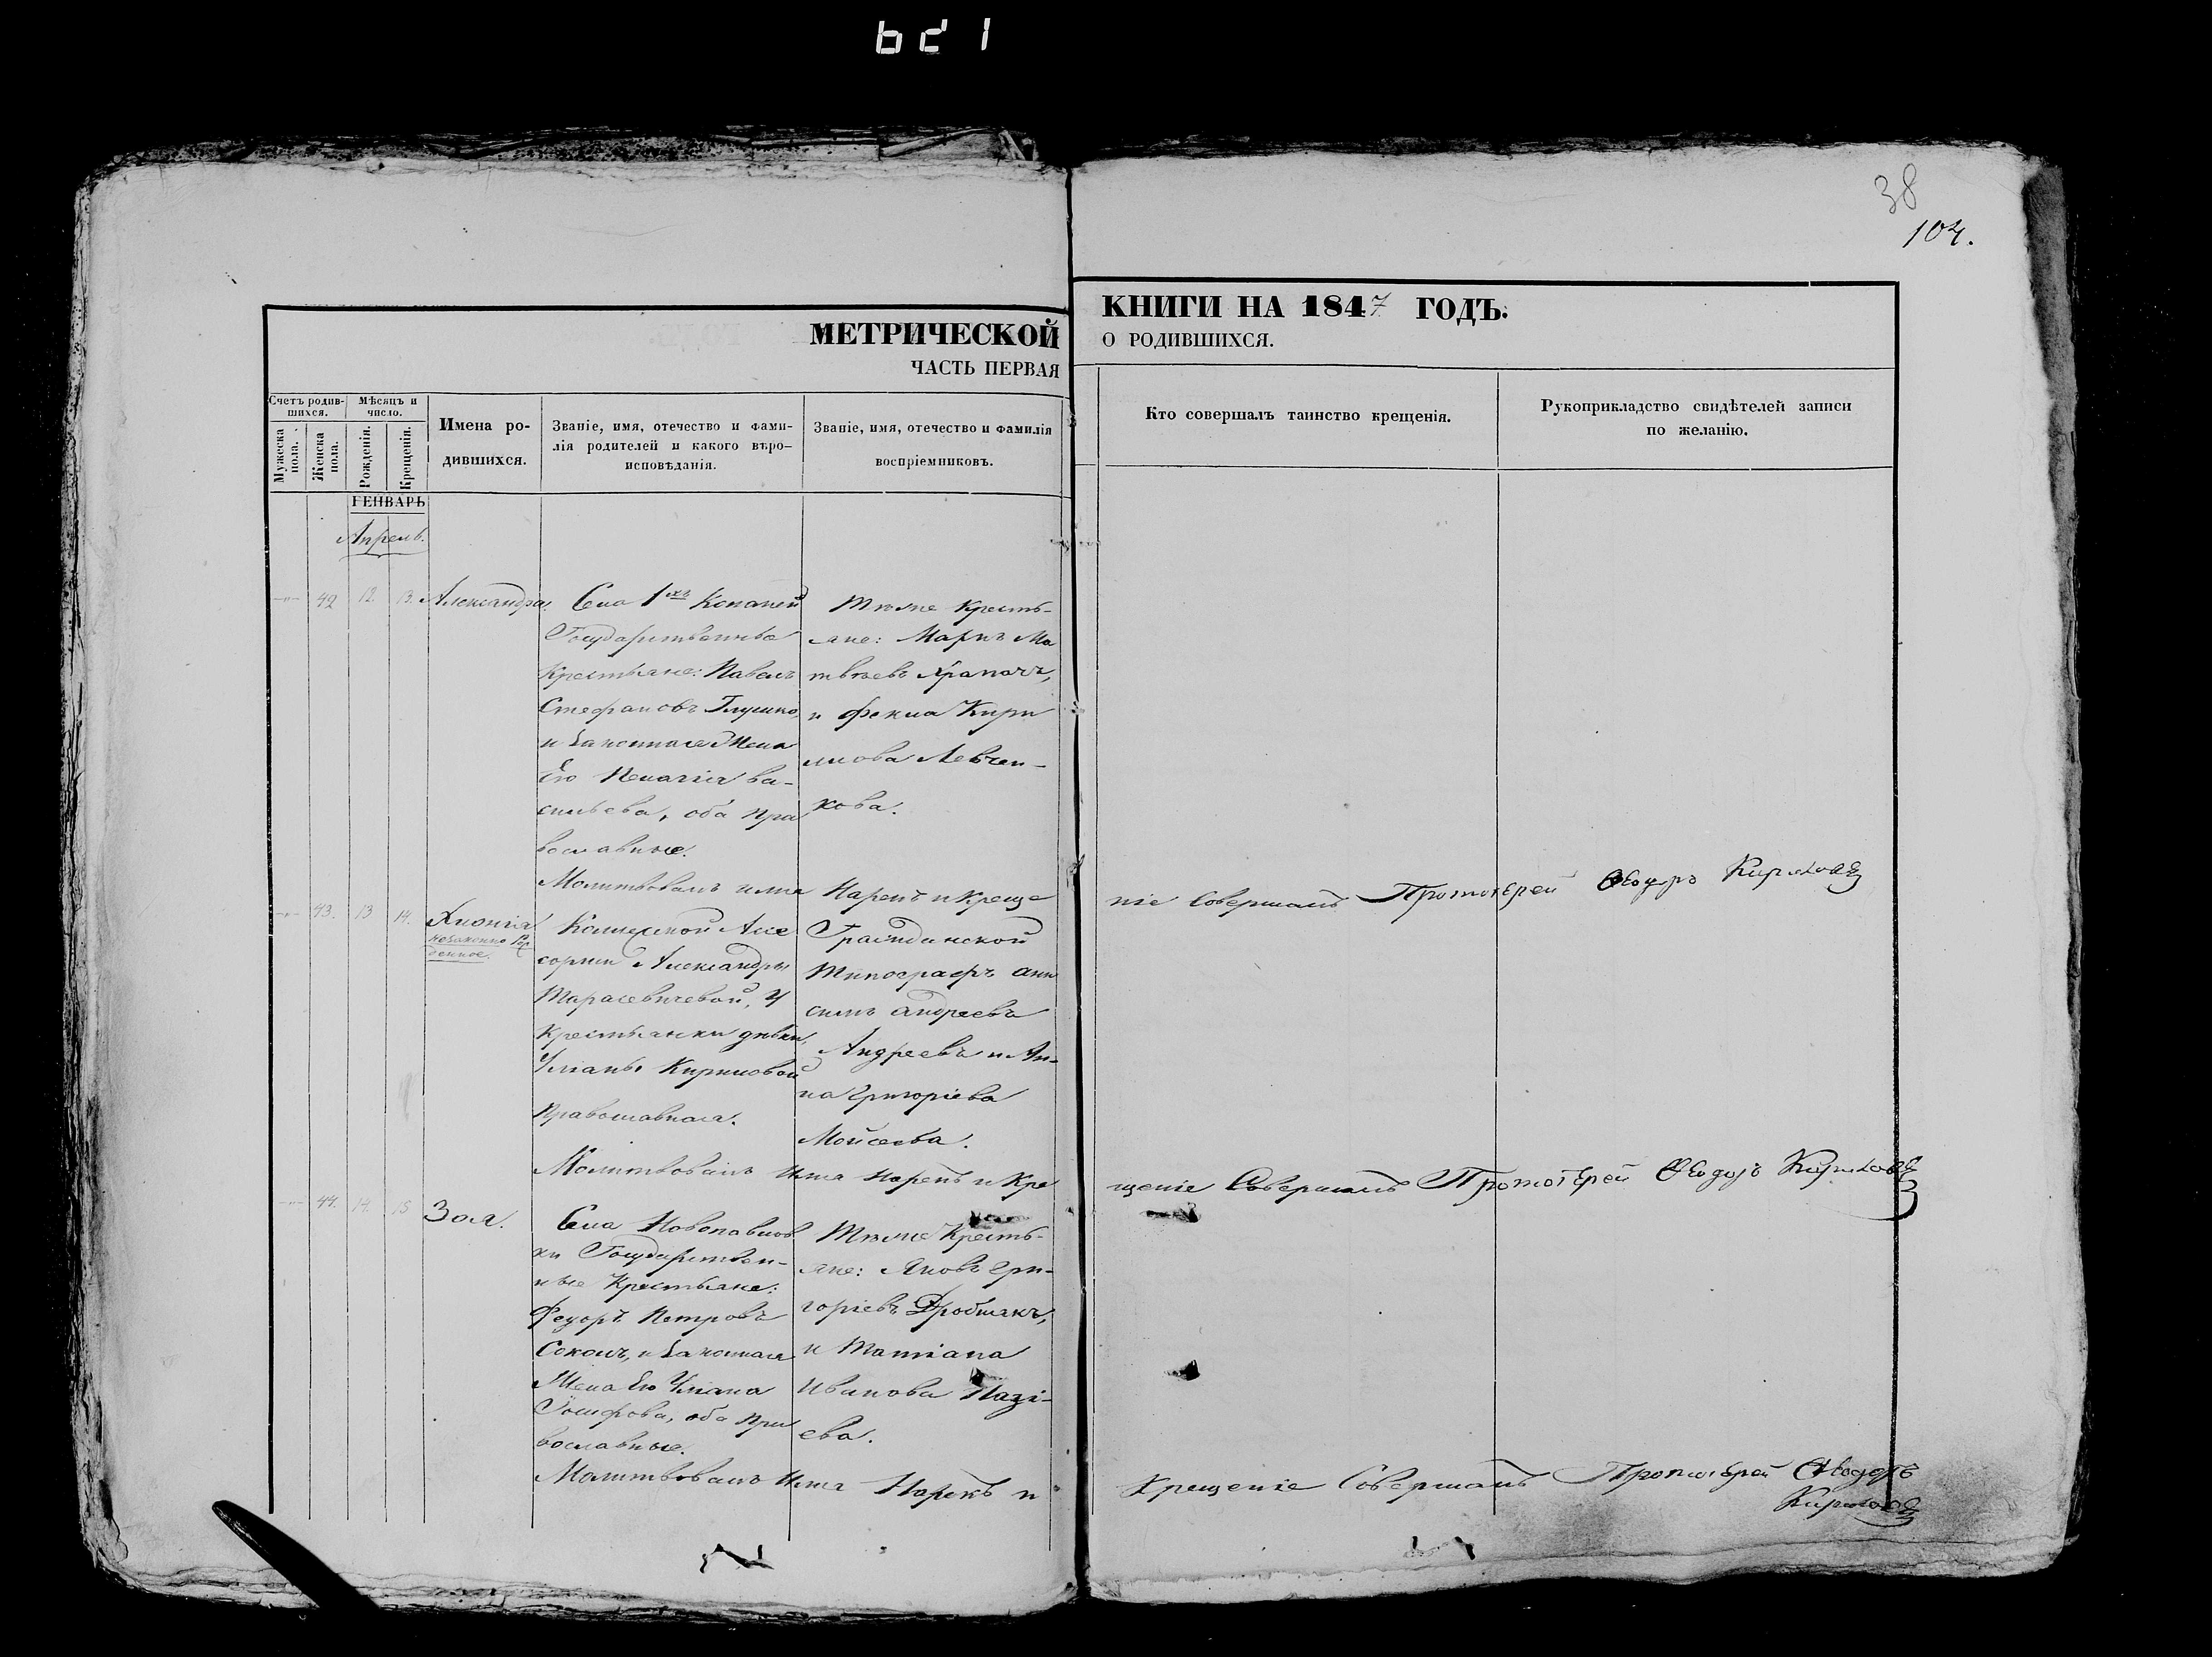 621
38
104.
МЕТРИЧЕСКОЙ
ЧАСТЬ ПЕРВАЯ
КНИГИ НА 1847 ГОДЪ.
О РОДИВШИХСЯ.
Счетъ родив-
шихся.
Мужеска
пола.
Женска
пола.
Мѣсяцъ и
число.
Рожденія.
Крещенія.
Имена ро-
дившихся.
Званіе, имя, отечество и фами-
лія родителей и какого вѣро-
исповѣданія.
Званіе, имя, отечество и фамилія
воспріемниковъ.
Кто совершалъ таинство крещенія.
Рукоприкладство свидѣтелей записи
по желанію.
ГЕНВАРЬ
Апрель.
42 12 13. Александра.
Села 1хъ Копаней
Государственные
Крестьяне: Павелъ
Стефановъ Глушко,
и Законная Жена
Его Пелагія Ва-
сильева, оба пра
вославные.
Тѣже Кресть-
яне: Маркъ Ма
твѣевъ Храпачъ,
и Фекла Кири
лова Левчен-
кова.
Молитвовалъ имя Нарекъ и Креще
ніе Совершалъ Протоіерей Ѳеодоръ
43. 13 14. Хіонія
незаконно Рож
денное.
Колежской Асе
сорши Александры
Тарасевичевой, у
Крестьянки дѣвки,
Уліаны Кириловой
Православная.
Гражданской
Типографъ Ани
симъ Андреевъ
Андреевъ и Ан-
на Григоріева
Мойсеева.
Молитвовалъ Имя Нарекъ и Кре
щеніе Совершалъ Протоіерей Ѳеодоръ
44. 14. 15 Зоя.
Села Новопавлов
ки Государствен-
ные Крестьяне:
Федоръ Петровъ
Соколъ, и Законная
Жена Его Уліана
Іосифова, оба Пра
вославные.
Тѣже Кресть-
яне: Яковъ Гри-
горіевъ Дробмякъ,
и Татіана
Иванова Назі-
ева.
Молитвовалъ Имя Нарекъ и
Крещеніе Совершалъ Протоіерей Ѳеодоръ